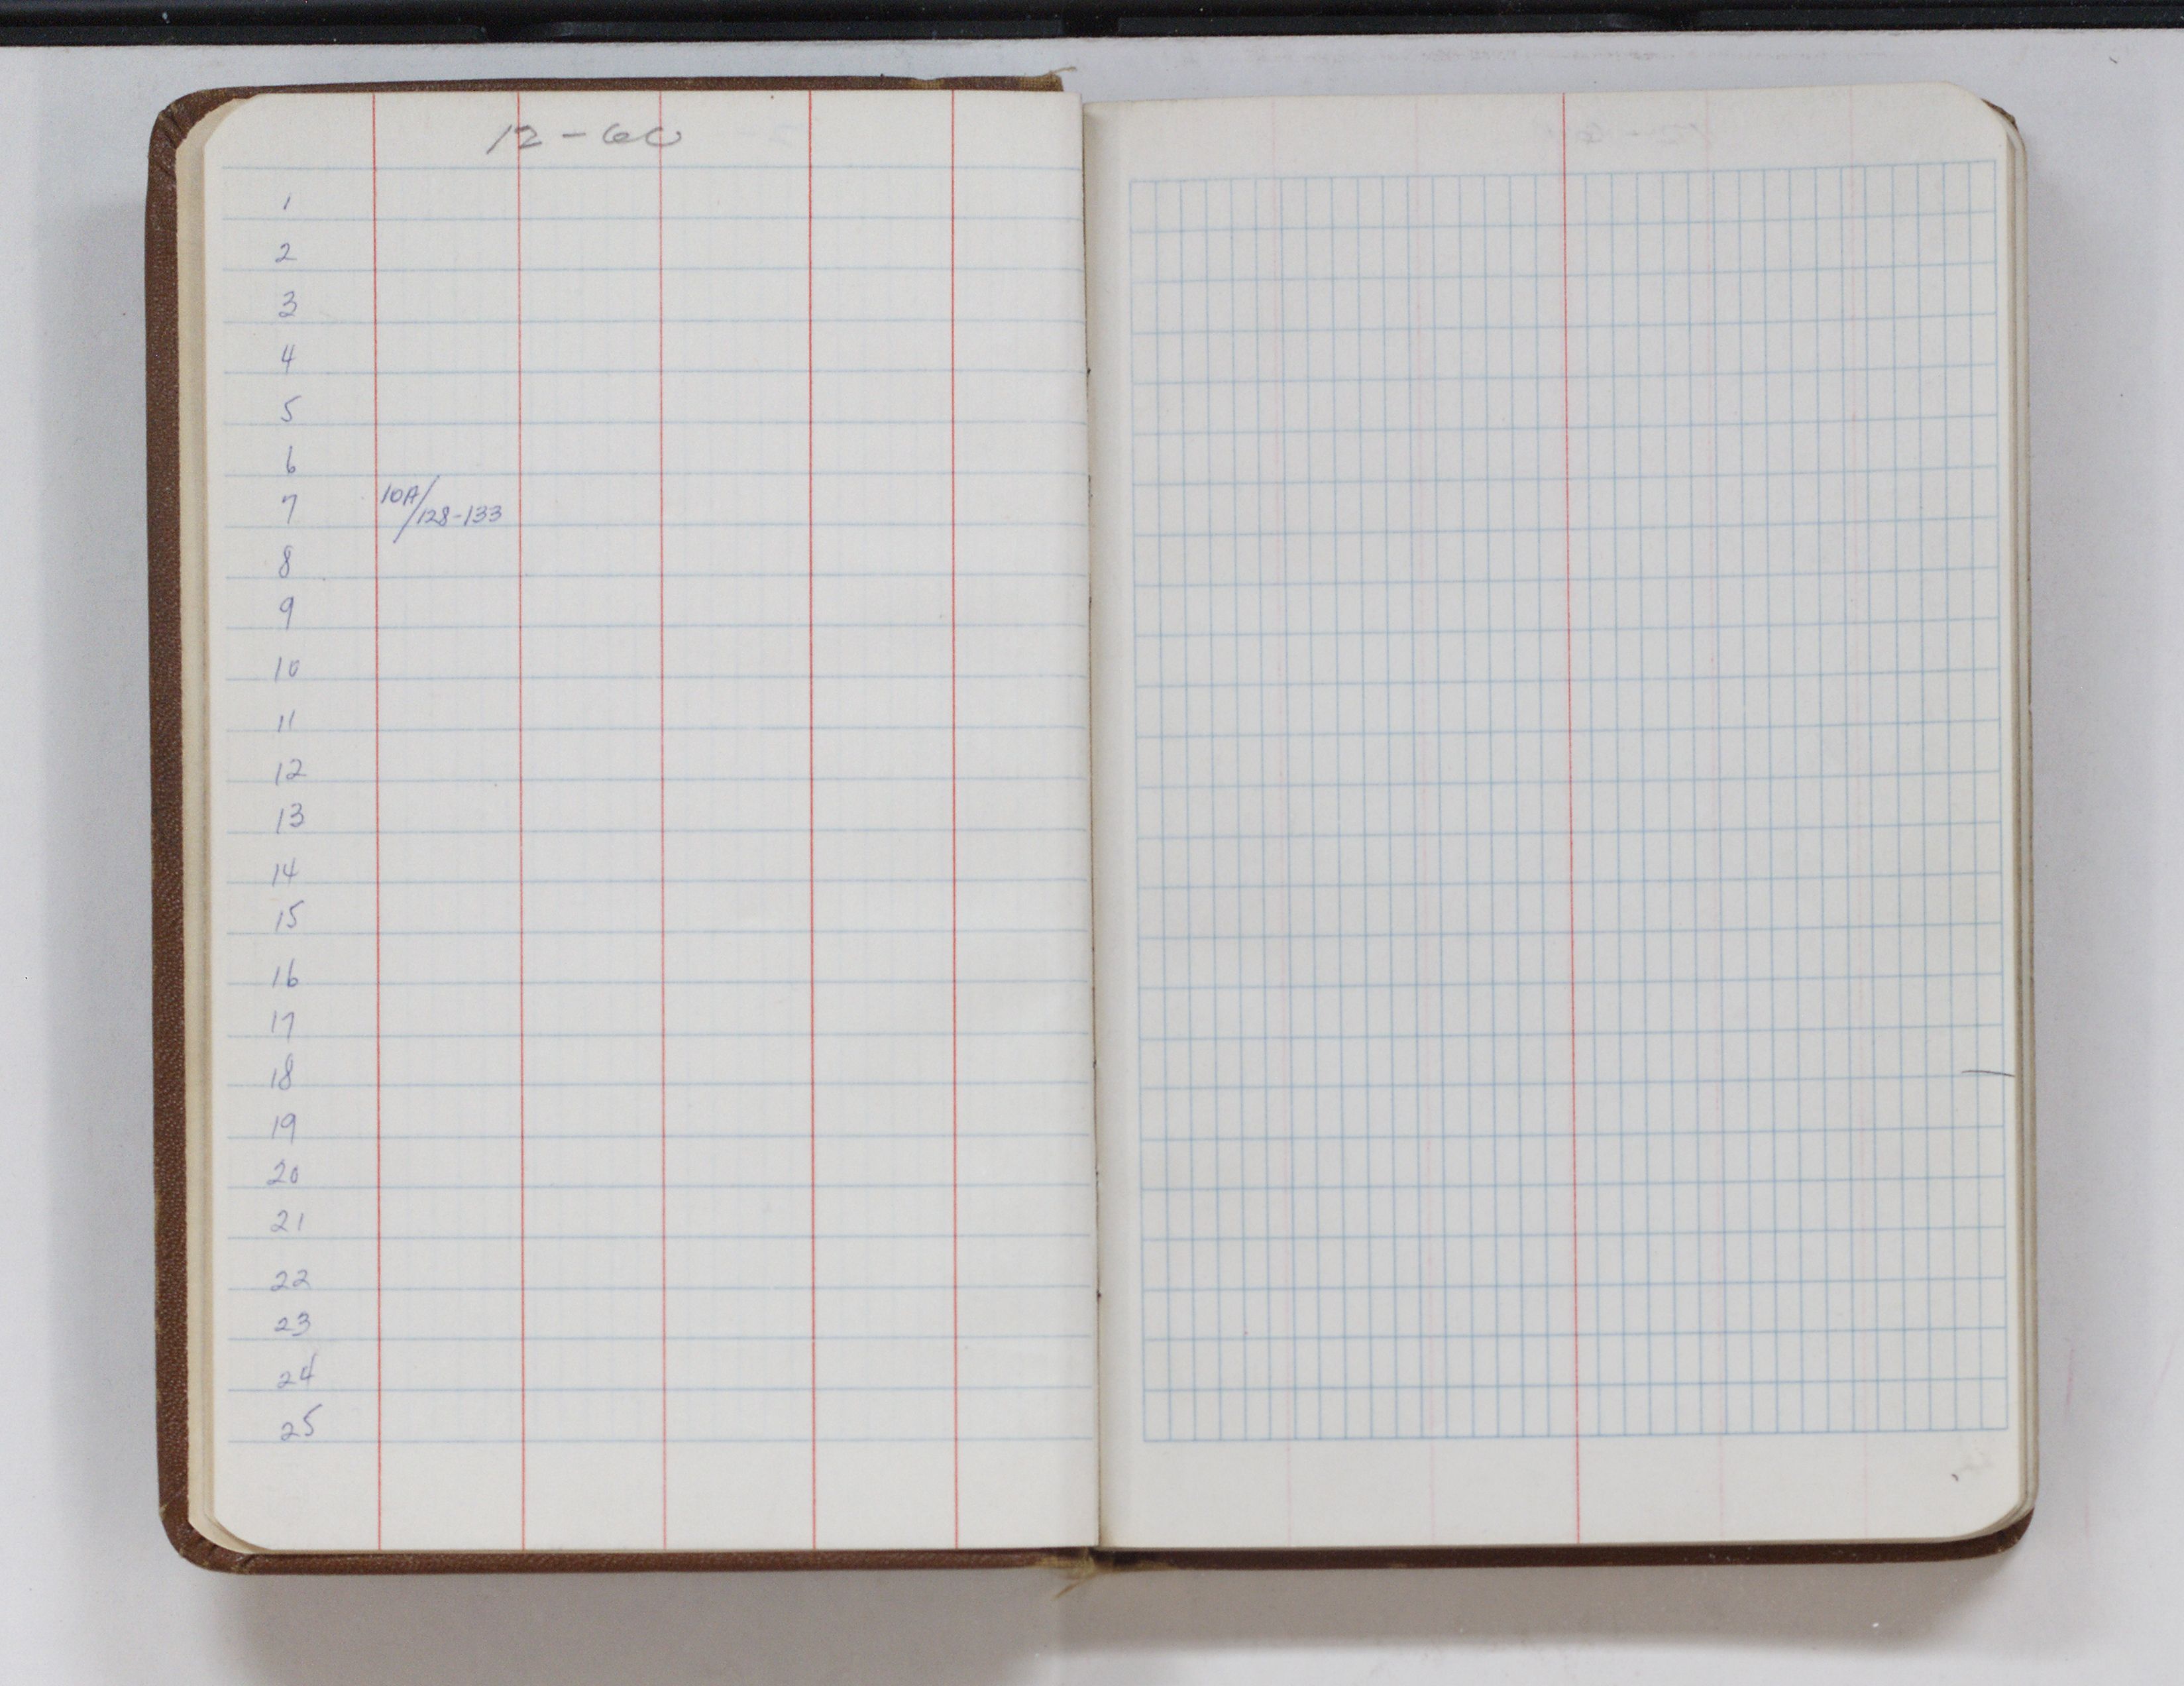 12-60
1
2
3
4
5
6
7 10A/128-133
8
9
10
11
12
13
14
15
16
17
18
19
20
21
22
23
24
25